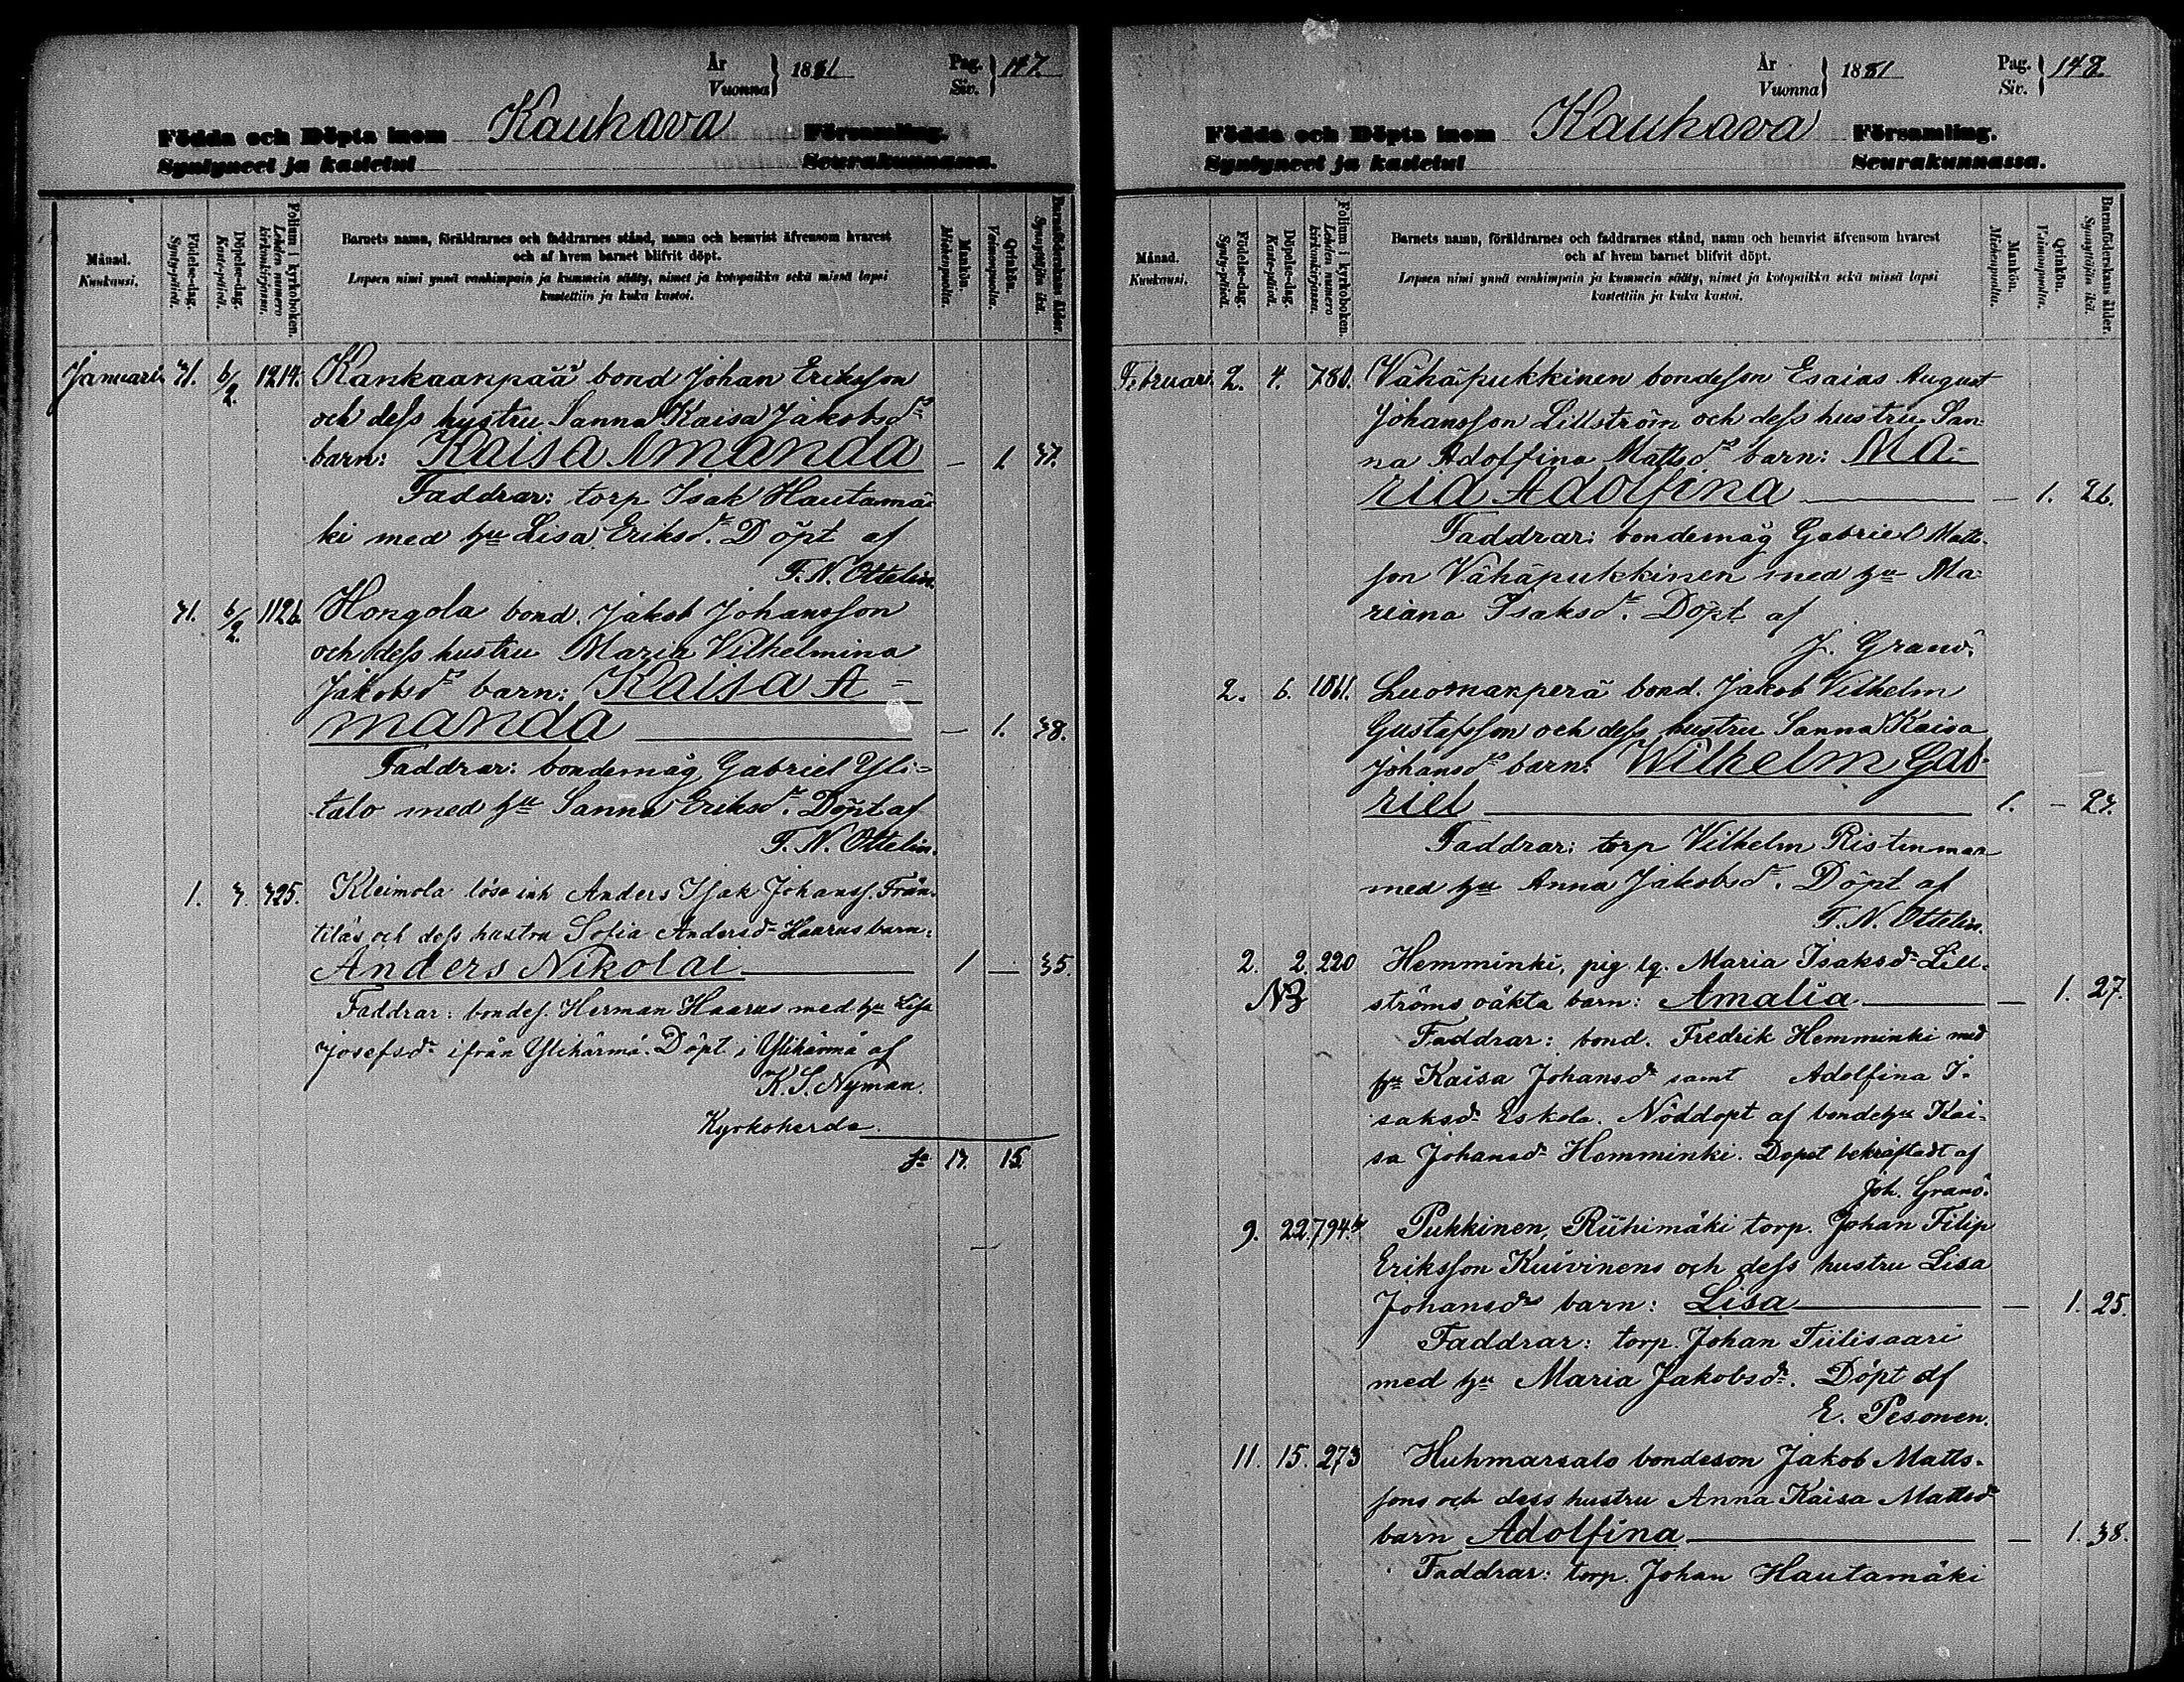 År
Vuonna } 1881
Pag.
Siv. } 147.
Födda och Döpta inom Kauhava Församling.
Syntyneet ja kastetut Seurakunnassa.
Månad.
Kuukausi.
Födelse-dag.
Synty-päivä.
Döpelse-dag.
Kaste-päivä.
Folium i kyrkoboken.
Lehden numero kirkonkirjassa.
Barnets namn, föräldrarnes och faddrarnes stånd, namn och hemvist äfvensom hvarest
och af hvem barnet blifvit döpt.
Lapsen nimi ynnä vanhimpain ja kummein sääty, nimet ja kotopaikka sekä missä lapsi
kastettiin ja kuka kastoi.
Mankön.
Miehenpuolia.
Qvinkön.
Vaimonpuolia.
Barnföderskans ålder.
Synnyttäjän ikä.
Januari 31. 6/2. 1214. Kankaanpää bond Johan Eriksson
och dess hustru Sanna Kaisa Jakobsd:s
barn: Kaisa Amanda — 1. 37.
Faddrar: torp Isak Hautamä-
ki med hu Lisa Eriksd:r. Döpt af
F. N. Ottelin.
31. 6/2. 1126. Hongola bond. Jakob Johansson
och dess hustru Maria Vilhelmina
Jakobsd:s barn: Kaisa A=
manda — 1. 38.
Faddrar: bondemåg Gabriel Yli=
talo med hu Sanna Eriksd:r. Döpt af
F. N. Ottelin.
1. 3. 325. Kleimola löse inh Anders Isak Johanss. Frän-
tiläs och dess hustru Sofia Andersd:r Haarus barn:
Anders Nikolai 1 — 35.
Faddrar: bondes. Herman Haarus med hu Lisa
Josefsd:r ifrån Ylihärmä. Döpt i Ylihärmä af
K. S. Nyman.
Kyrkoherde.
S:a 17. 15
År
Vuonna } 1881
Pag.
Siv. } 148.
Födda och Döpta inom Kauhava Församling.
Syntyneet ja kastetut Seurakunnassa.
Månad.
Kuukausi.
Födelse-dag.
Synty-päivä.
Döpelse-dag.
Kaste-päivä.
Folium i kyrkoboken.
Lehden numero kirkonkirjassa.
Barnets namn, föräldrarnes och faddrarnes stånd, namn och hemvist äfvensom hvarest
och af hvem barnet blifvit döpt.
Lapsen nimi ynnä vanhimpain ja kummein sääty, nimet ja kotopaikka sekä missä lapsi
kastettiin ja kuka kastoi.
Mankön.
Miehenpuolia.
Qvinkön.
Vaimonpuolia.
Barnföderskans ålder.
Synnyttäjän ikä.
Februari. 2. 4. 780. Vähäpukkinen bondesson Esaias August
Johansson Lillström och dess hustru San-
na Adolfina Mattsd:s barn: Ma-
ria Adolfina — 1. 26.
Faddrar: bondemåg Gabriel Matts-
son Vähäpukkinen med hu Ma-
riana Isaksd:r. Döpt af
J. Granö.
2. 6. 1061. Luomanperä bond. Jakob Vilhelm
Gustafsson och dess hustru Sanna Kaisa
Johansd:s barn: Wilhelm Gab-
riel 1. — 27.
Faddrar: torp Vilhelm Ristinman
med hu Anna Jakobsd:r. Döpt af
F. N. Ottelin.
2. 2. 220 Hemminki, pig. lg. Maria Isaksd:r Lill-
NB ströms oäkta barn: Amalia — 1. 27.
Faddrar: bond. Fredrik Hemminki med
hu Kaisa Johansd:r samt Adolfina I-
saksd:r Eskola. Nöddöpt af bondehu Kai-
sa Johansd:r Hemminki. Dopet bekräftadt af
Joh. Granö.
9. 22. 794. Pukkinen, Riihimäki torp. Johan Filip
Eriksson Kuivinens och dess hustru Lisa
Johansd:rs barn: Lisa — 1. 25.
Faddrar: torp. Johan Tiilisaari
med hu Maria Jakobsd:r. Döpt af
E. Pesonen.
11. 15. 273 Huhmarsalo bondeson Jakob Matts-
sons och dess hustru Anna Kaisa Mattsd:r
barn Adolfina — 1. 38.
Faddrar: torp. Johan Hautamäki